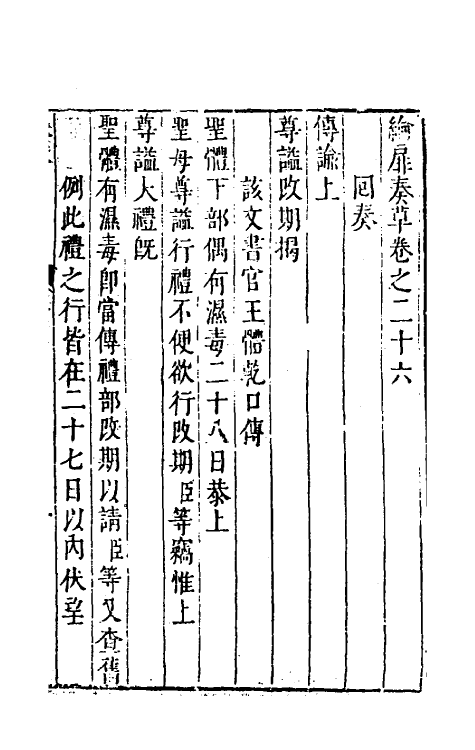 綸扉奏草卷之二十六
回奏
傳諭上
尊謚改期揭
該文書官王體乾口傳
聖體下部偶有濕毒二十八日恭上
聖母尊謚行禮不便欲行改期臣等竊惟上
尊謚大禮旣
聖體有濕毒卽當傳禮部改期以請臣等又查舊
例此禮之行皆在二十七日以內伏望